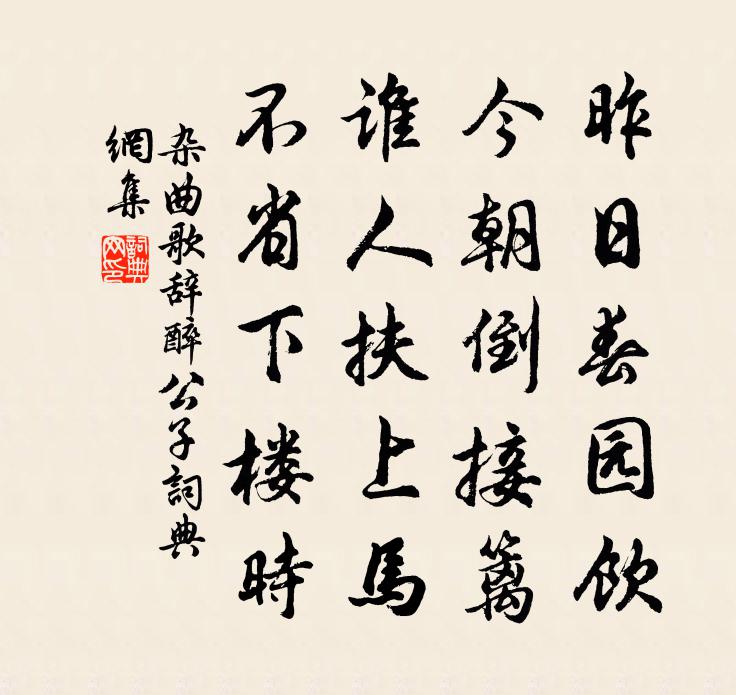 昨日春园饮
今朝倒接篱
谁人扶上馬
不省下楼時
杂曲歌辞醉公子詞典
網集
詞典
网印